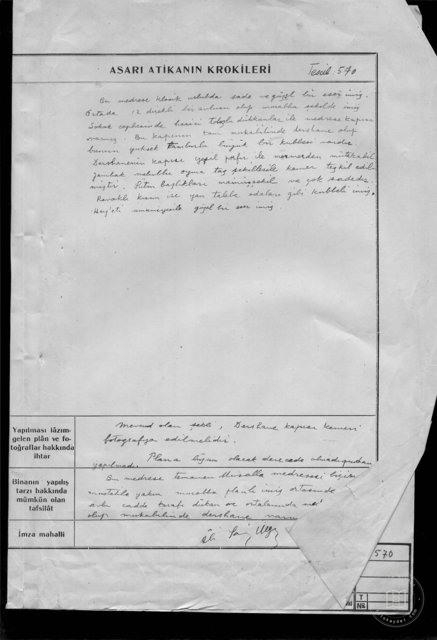 ASARI ATİKANIN KROKİLERİ
Tescil 570
Bu medrese klasik uslubda sade ve güzel bir eser imiş.
Ortada 12 direkli bir avlusu olup murabba şekilde imiş
Sokak cephesinde harici dükkanlar ile medrese kapısı
varmış. Bu kapının tam mukabilinde dershane olup
bunun yüksek tamburlu büyük bir kubbesi vardır
Dershanenin kapısı yeşil porfir ile mermerden mütekabil
zambak uslublu oyma taş şekillerile kemer teşkil edil
miştir. Bütün başlıkları ve çok sadedir
Revaklı kısım ise yan talebe odaları gibi kubbeli imiş.
Hey'eti umumiyesile güzel bir eser imiş
Yapılması lâzım-
gelen plân ve fo-
toğraflar hakkında
ihtar
Mevcud olan şekli, Dershane kapısı kemeri
fotografya edilmelidir.
Planı olacak derecede olmadığından
yapılmadı.
Binanın yapılış
tarzı hakkında
mümkün olan
tafsilât
Bu medrese tamamen medresesi
yakın murabba planlı imiş ortasında
avlu cadde tarafı dükan ve ortalarında
olup mukabilinde dershane
İmza mahalli
570
T
№